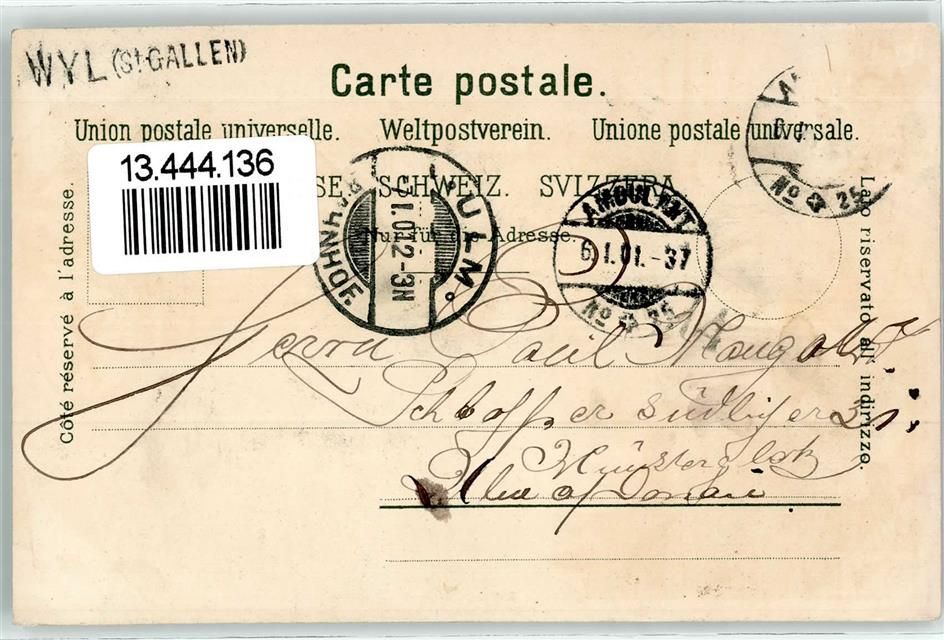 WYL (St. GALLEN)
Carte postale.
Union postale universelle. Weltpostverein. Unione postale universale.
13.444.136
SCHWEIZ. SVIZZERA.
Nur für die Adresse.
Côté réservé à l'adresse.
Lato riservato all' indirizzo.
ULM
BAHNHOF.
1.01.2-3N
AMBULANT
6.I.01.-37
No 35
No 25
Herrn Paul
Schlosser
Münsterplatz
Ulm a/Donau